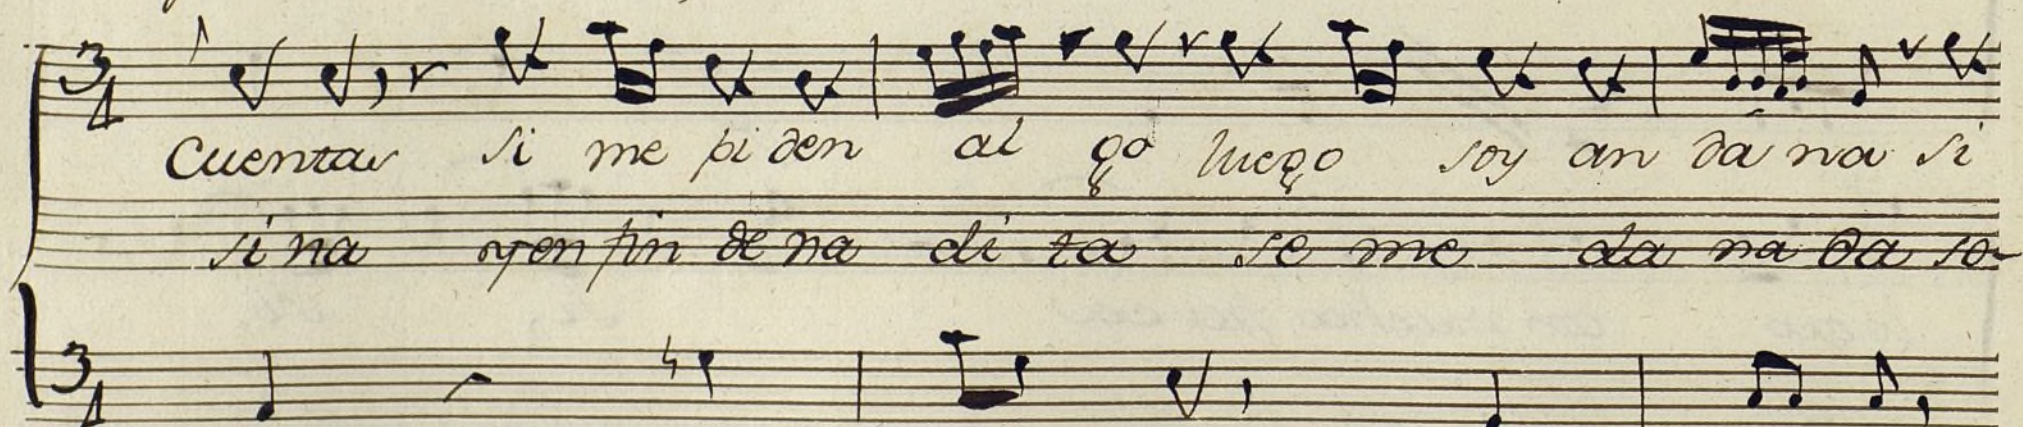 Cuentas si me pi den al go luego soy an da na si
si na yen fin de na di ta se me da na da so-